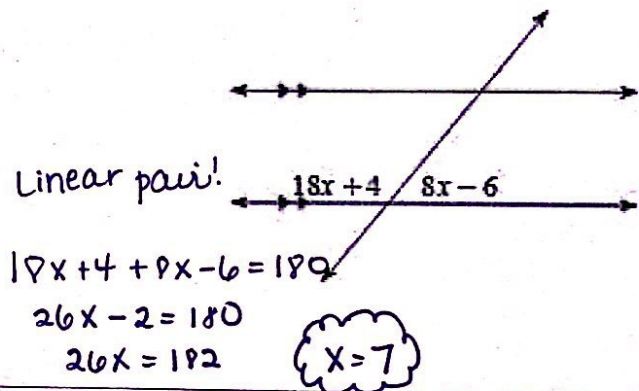 Linear pair!
18x + 4
8x – 6
18x + 4 + 8x - 6 = 180
26x - 2 = 180
26x = 182
x = 7